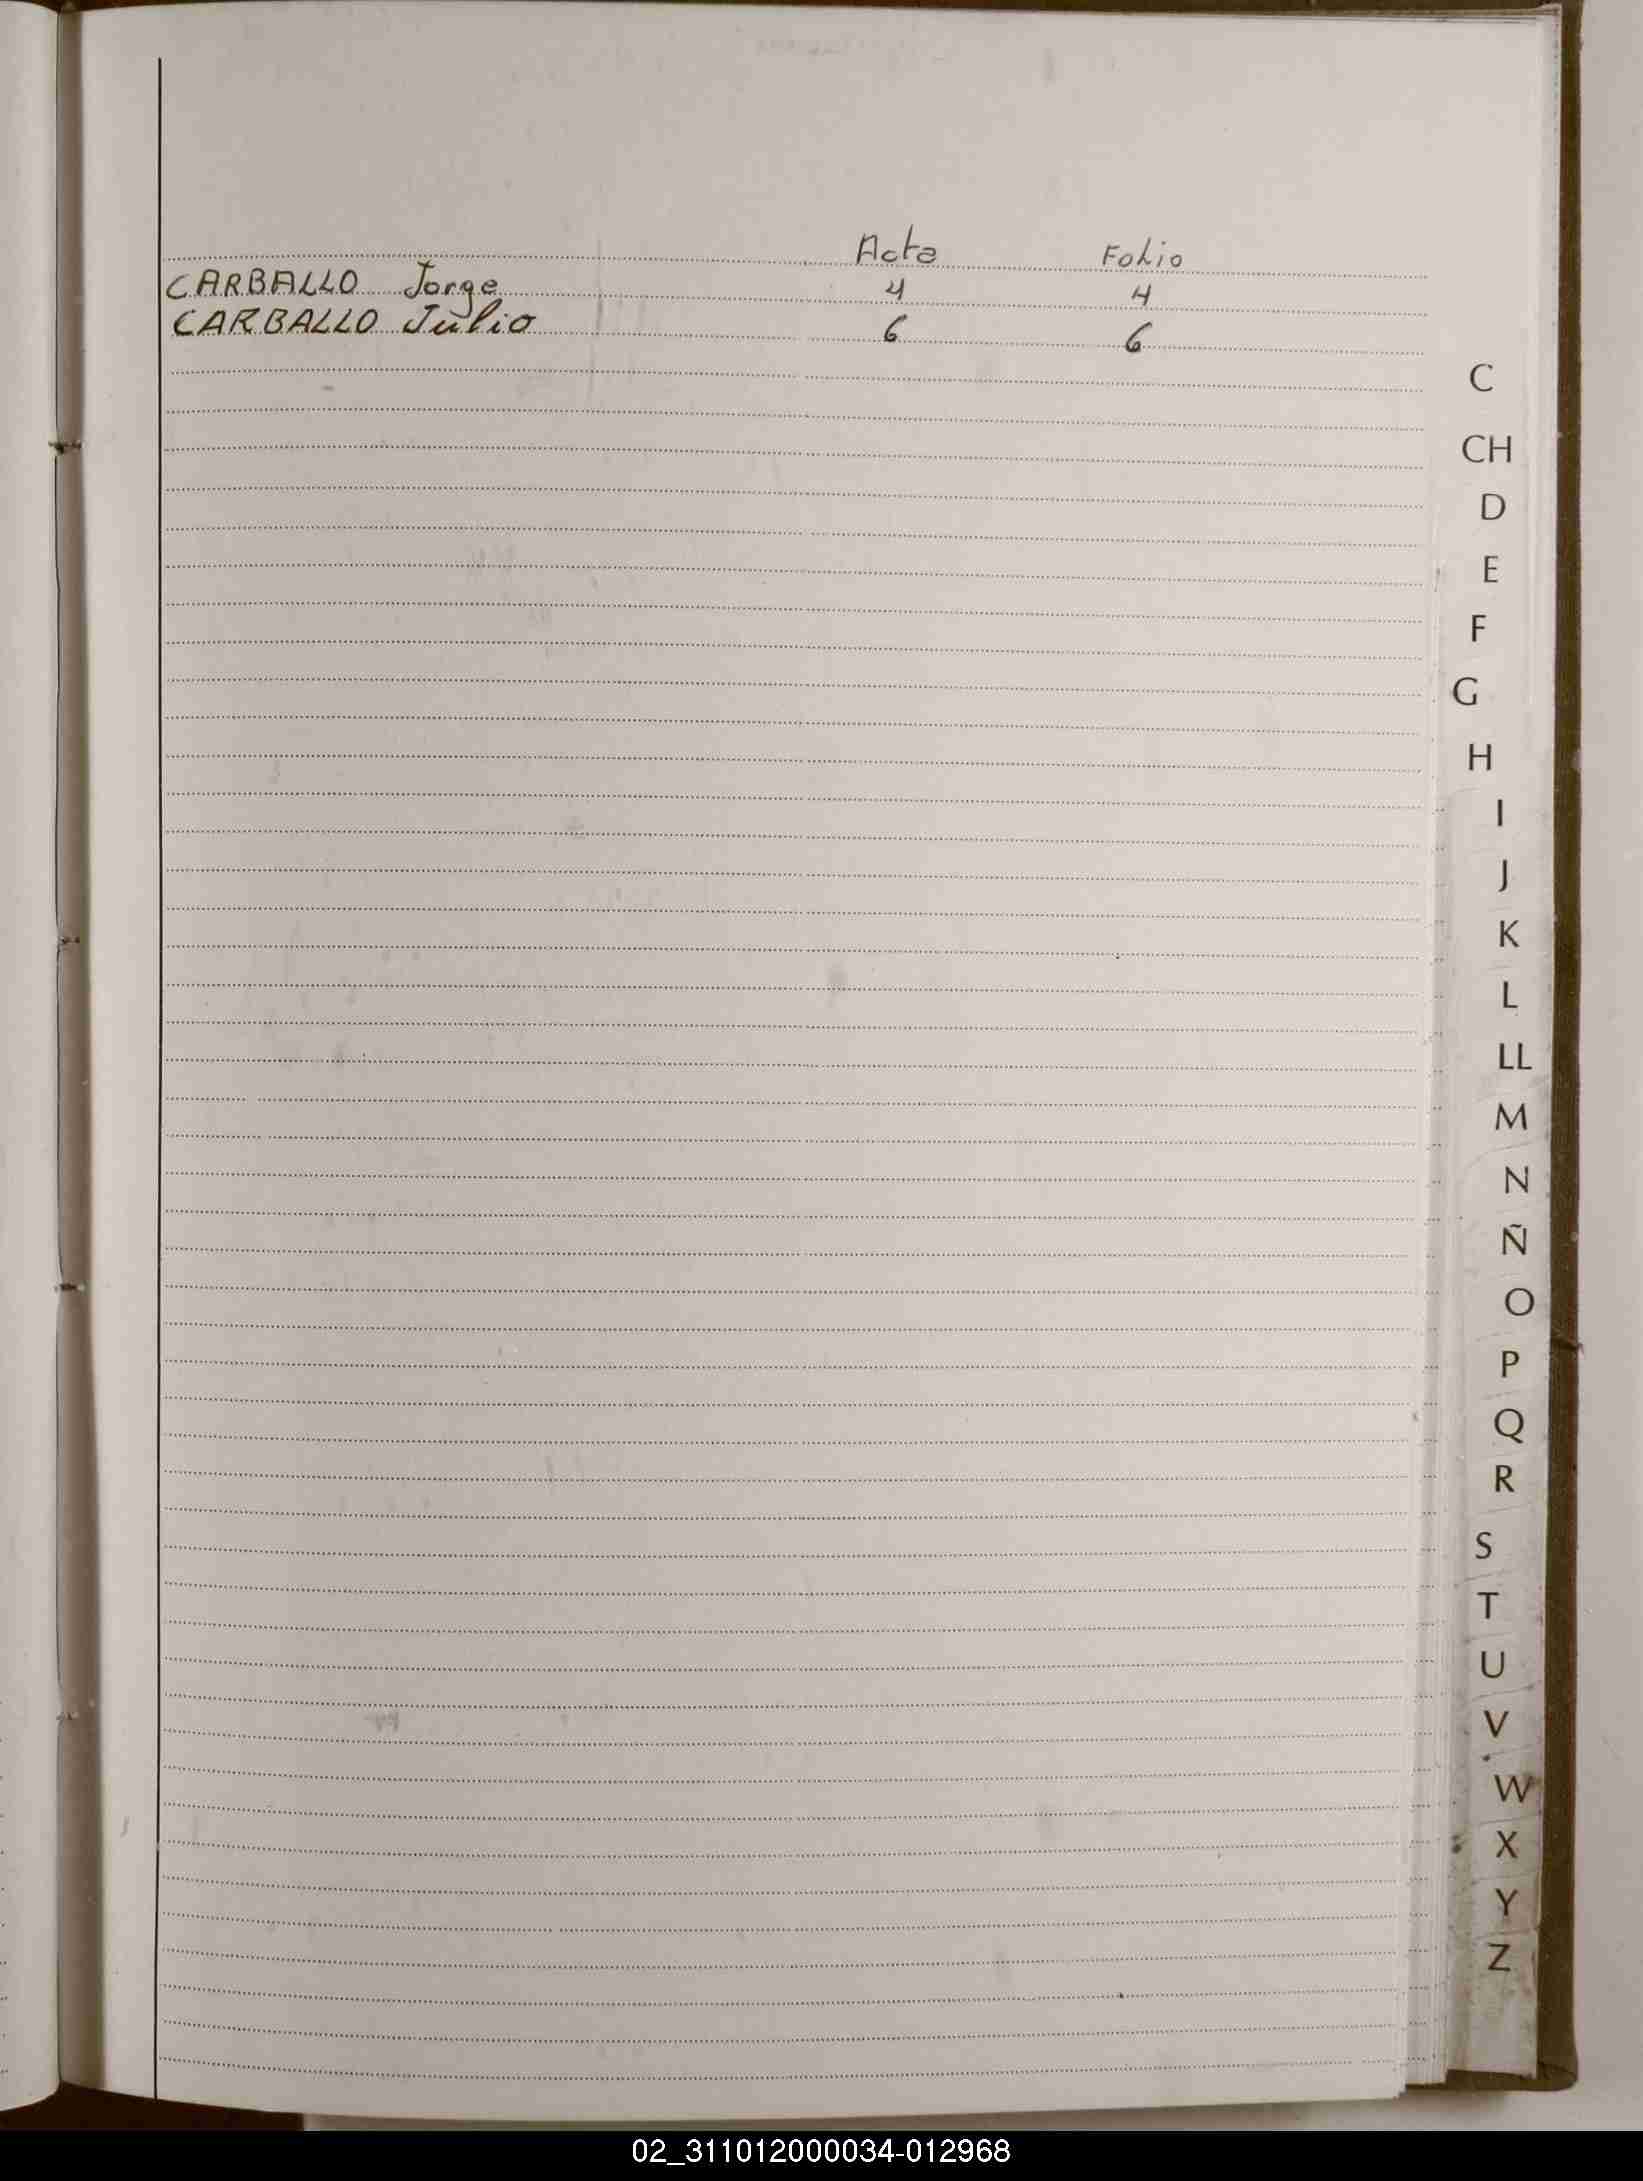 Acta Folio
CARBALLO Jorge 4 4
CARBALLO Julio 6 6
C
CH
D
E
F
G
H
I
J
K
L
LL
M
N
Ñ
O
P
Q
R
S
T
U
V
W
X
Y
Z
02_311012000034-012968